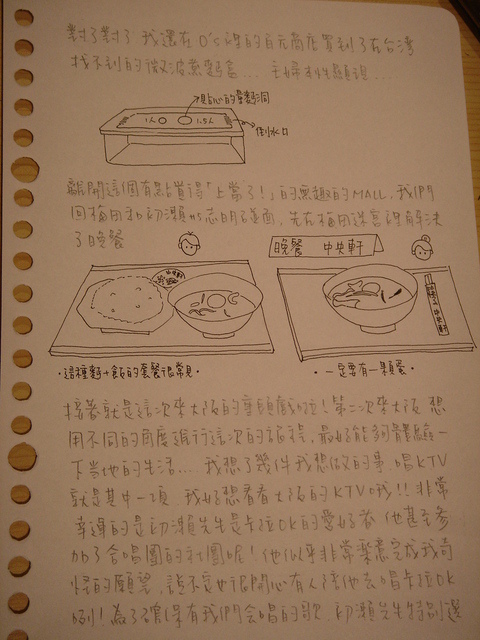 對了對了 我還在O's裡的百元商店買到了在台灣
找不到的微波煮麵盒... 主婦本性顯現...
貼心的量麵洞
1人 1.5人
倒水口
離開這個有點覺得「上當了！」的無趣的MALL, 我們
回梅田和初瀨 明 碰面, 先在梅田迷宮裡解決
了晚餐
晚餐 中央軒
中央軒
這種麵+飯的套餐很常見
一定要有一顆蛋
接著就是這次來大阪的重頭戲啦！第二次來大阪 想
用不同的角度進行這次的旅程, 最好能夠體驗一
下當他的生活... 我想了幾件我想做的事 唱KTV
就是其中一項 我好想看看大阪的KTV哦!! 非常
幸運的是初瀨先生是卡拉OK的愛好者 他甚至參
加了合唱團的社團呢！他似乎非常樂意完成我奇
怪的願望, 說不定他很開心有人陪他去唱卡拉OK
咧！為了確保有我們會唱的歌, 初瀨先生特別選